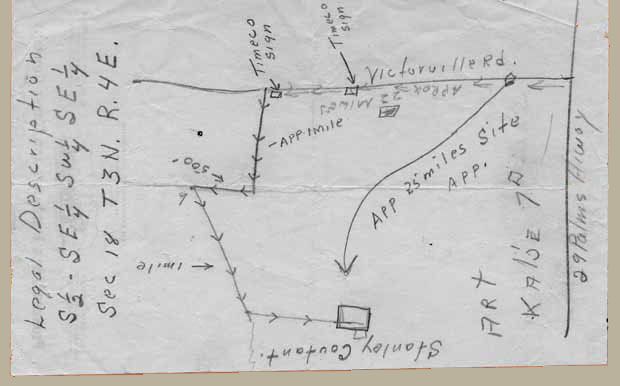 Legal Description
S½-SE¼ SW¼ SE¼
Sec 18 T3N. R.4E.
Timeco
sign
Timeco
sign
Victorville Rd.
Approx 2½
Miles
-App.1mile
500'
1mile
App 25 miles Site
App.
Stanley Coutant.
ART
29 Palms Hiway